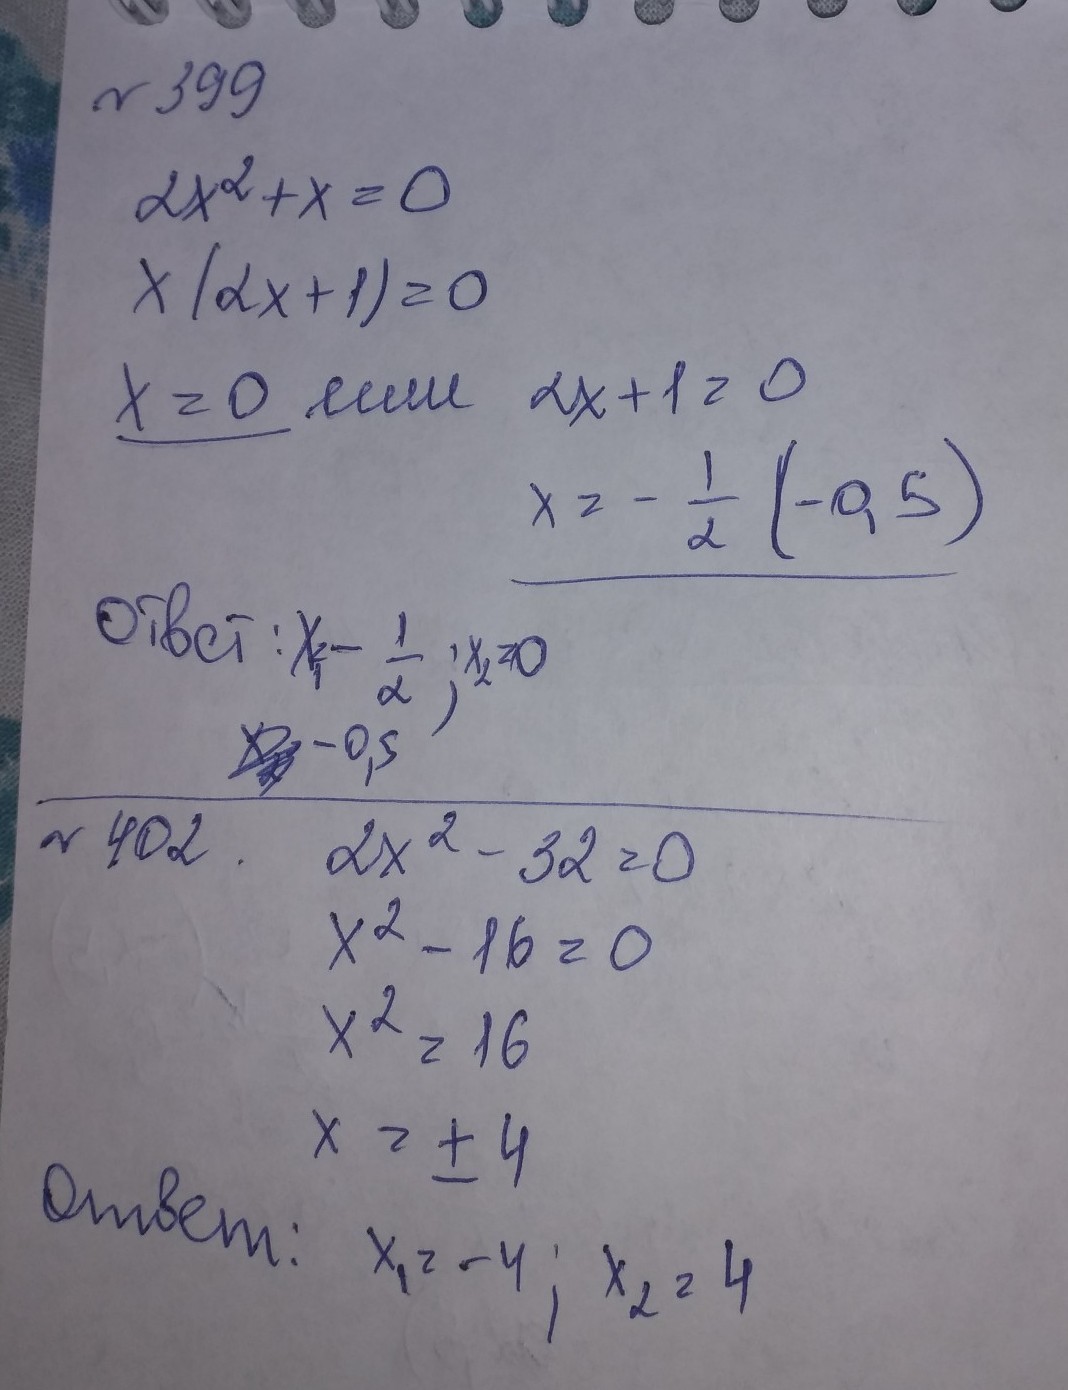 № 399
2x² + x = 0
x(2x+1) = 0
x = 0 или 2x + 1 = 0
x = - 1/2 (-0,5)
Ответ: x₁ = - 1/2 ; x₂ = 0
-0,5
№ 402. 2x² - 32 = 0
x² - 16 = 0
x² = 16
x = ± 4
Ответ: x₁ = -4 ; x₂ = 4